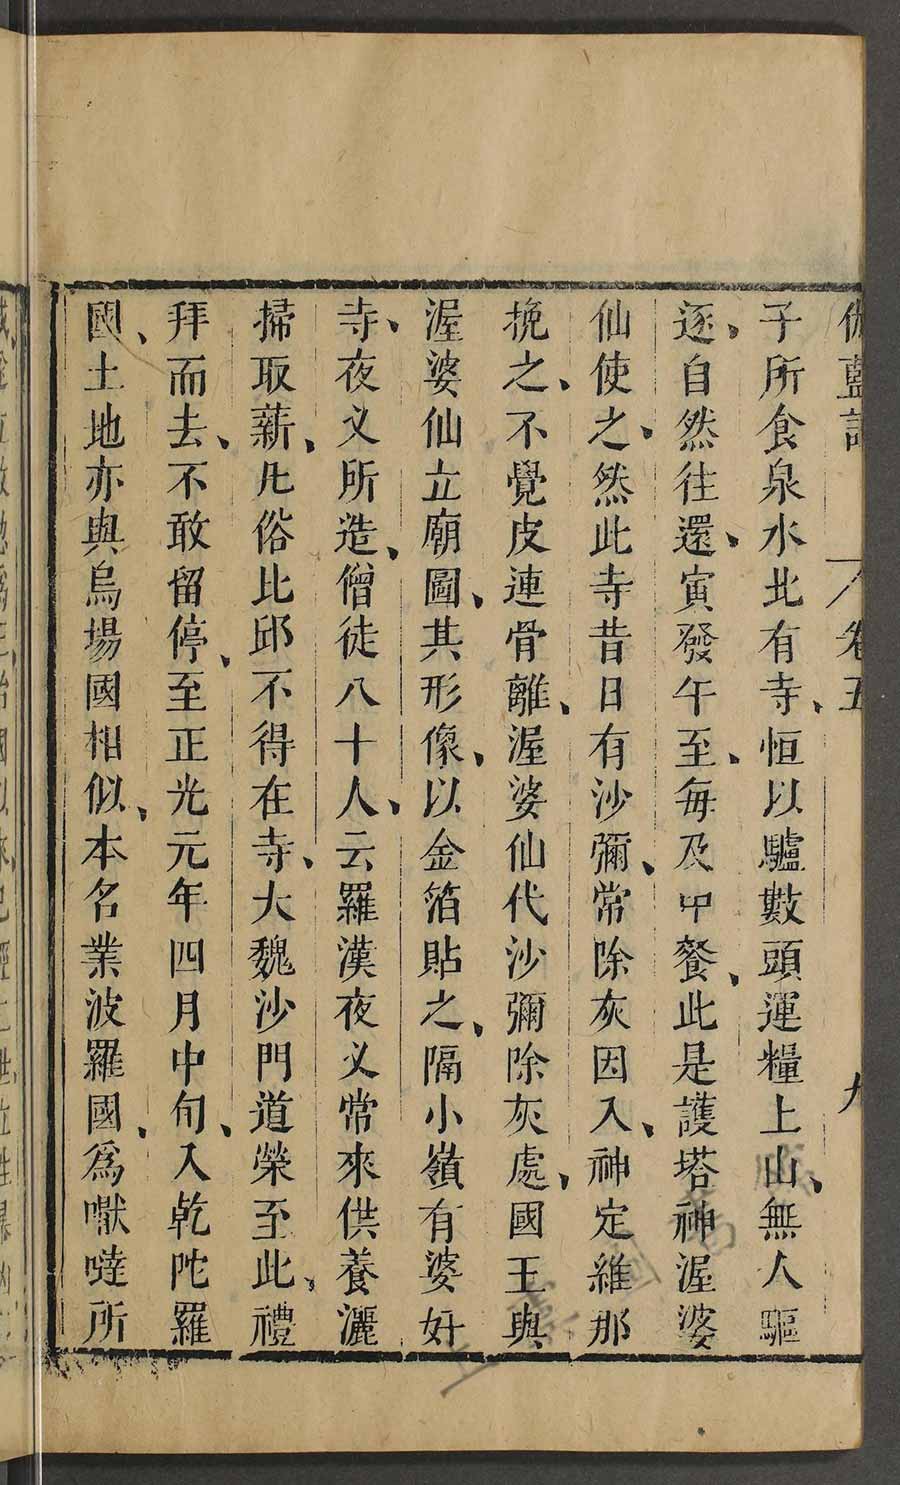 伽藍記 卷五 九
子所食泉水北有寺、恒以驢數頭運糧上山、無人驅
逐、自然往還、寅發午至、每及中餐、此是護塔神渥婆
仙使之、然此寺昔日有沙彌、常除灰因入、神定維那
挽之、不覺皮連骨離、渥婆仙代沙彌除灰處、國王與
渥婆仙立廟圖、其形像、以金箔貼之、隔小嶺有婆奸
寺、夜义所造、僧徒八十人、云羅漢夜义常來供養灑
掃取薪、凡俗比邱不得在寺、大魏沙門道榮至此、禮
拜而去、不敢留停、至正光元年四月中旬、入乾陀羅
國、土地亦與烏場國相似、本名業波羅國、為嚈噠所